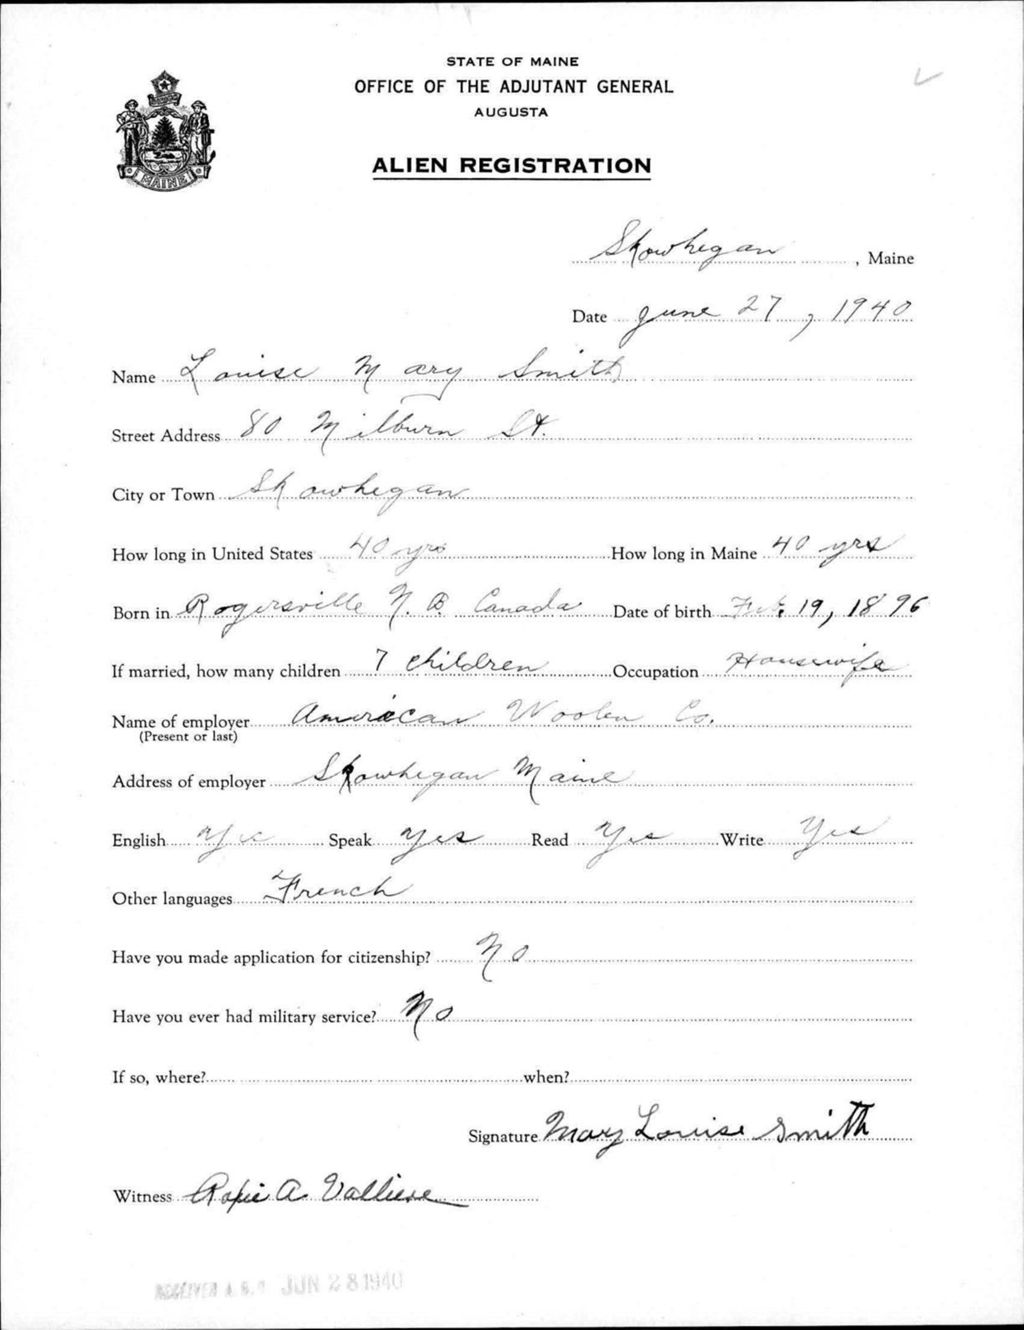 STATE OF MAINE
OFFICE OF THE ADJUTANT GENERAL
AUGUSTA
MAINE
ALIEN REGISTRATION
Skowhegan, Maine
Date June 27, 1940
Name Louise Mary Smith
Street Address 80 Milburn St.
City or Town Skowhegan
How long in United States 40 yrs How long in Maine 40 yrs
Born in Rogersville N. B. Canada Date of birth Feb. 19, 1896
If married, how many children 7 children Occupation Housewife
Name of employer American Woolen Co.
(Present or last)
Address of employer Skowhegan Maine
English Yes Speak Yes Read Yes Write Yes
Other languages French
Have you made application for citizenship? No
Have you ever had military service? No
If so, where? when?
Signature Mary Louise Smith
Witness A. Valliere
RECEIVED A. G. O. JUN 28 1940